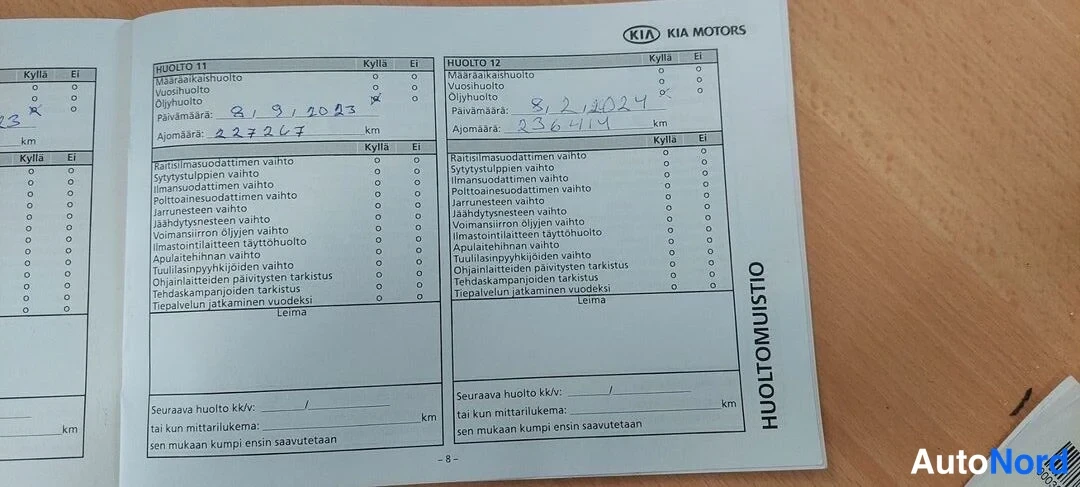 Kyllä Ei
23
km
Kyllä Ei
km
KIA KIA MOTORS
HUOLTO 11 Kyllä Ei
Määräaikaishuolto o o
Vuosihuolto o o
Öljyhuolto x o
Päivämäärä: 8, 9, 2023
Ajomäärä: 227267 km
Kyllä Ei
Raitisilmasuodattimen vaihto o o
Sytytystulppien vaihto o o
Ilmansuodattimen vaihto o o
Polttoainesuodattimen vaihto o o
Jarrunesteen vaihto o o
Jäähdytysnesteen vaihto o o
Voimansiirron öljyjen vaihto o o
Ilmastointilaitteen täyttöhuolto o o
Apulaitehihnan vaihto o o
Tuulilasinpyyhkijöiden vaihto o o
Ohjainlaitteiden päivitysten tarkistus o o
Tehdaskampanjoiden tarkistus o o
Tiepalvelun jatkaminen vuodeksi o o
Leima
Seuraava huolto kk/v: ______/__________
tai kun mittarilukema: ______________ km
sen mukaan kumpi ensin saavutetaan
HUOLTO 12 Kyllä Ei
Määräaikaishuolto o o
Vuosihuolto o o
Öljyhuolto x o
Päivämäärä: 8, 2, 2024
Ajomäärä: 236414 km
Kyllä Ei
Raitisilmasuodattimen vaihto o o
Sytytystulppien vaihto o o
Ilmansuodattimen vaihto o o
Polttoainesuodattimen vaihto o o
Jarrunesteen vaihto o o
Jäähdytysnesteen vaihto o o
Voimansiirron öljyjen vaihto o o
Ilmastointilaitteen täyttöhuolto o o
Apulaitehihnan vaihto o o
Tuulilasinpyyhkijöiden vaihto o o
Ohjainlaitteiden päivitysten tarkistus o o
Tehdaskampanjoiden tarkistus o o
Tiepalvelun jatkaminen vuodeksi o o
Leima
Seuraava huolto kk/v: ______/__________
tai kun mittarilukema: ______________ km
sen mukaan kumpi ensin saavutetaan
HUOLTOMUISTIO
- 8 -
AutoNord